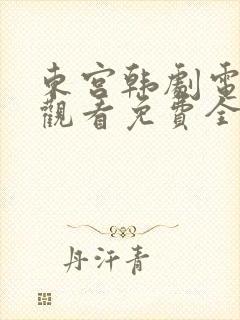 東宮韩劇電
觀看免費全
丹汗青